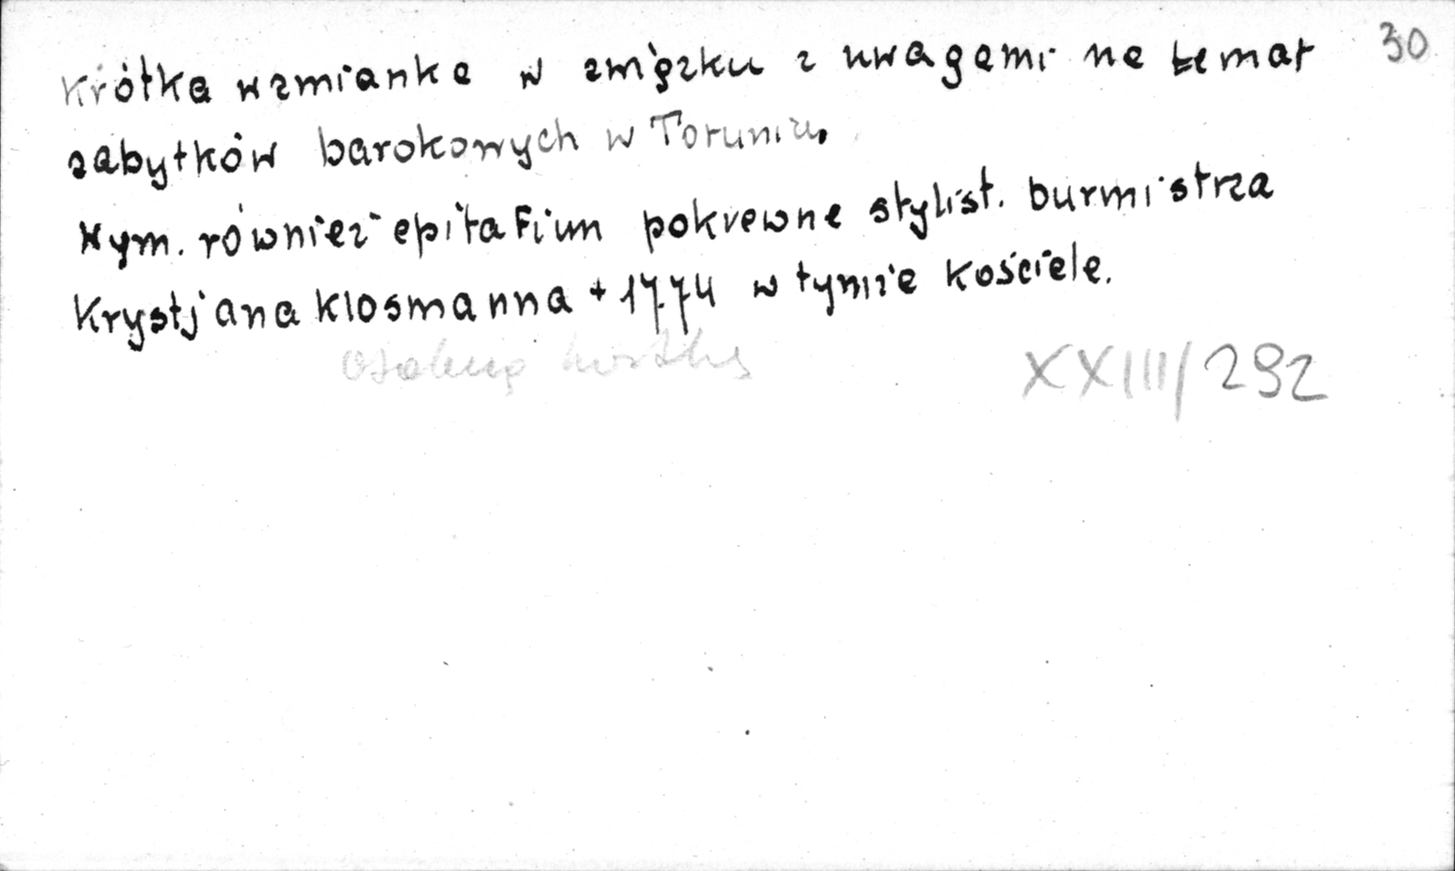 30
Krótka wzmianka w związku z uwagami na temat
zabytków barokowych w Toruniu.
Wym. również epitafium pokrewne stylist. burmistrza
Krystjana Klosmanna + 1774 w tymże kościele.
XXIII/292